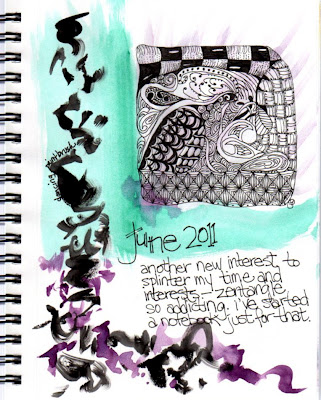 June 2011
another new interest to
splinter my time and
interests - zentangle
so addicting, i've started
a notebook just for that.